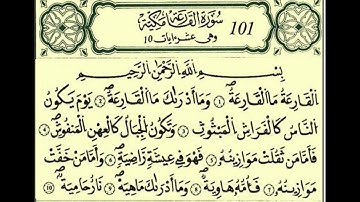 سُورَةُ الْقَارِعَةِ مَكِّيَّةٌ 101
وهي عشر ايات 10
بِسْمِ اللهِ الرَّحْمٰنِ الرَّحِيمِ
اَلْقَارِعَةُ مَا الْقَارِعَةُ ۝١ وَمَا أَدْرٰىكَ مَا الْقَارِعَةُ ۝٢ يَوْمَ يَكُونُ
النَّاسُ كَالْفَرَاشِ الْمَبْثُوثِ ۝٣ وَتَكُونُ الْجِبَالُ كَالْعِهْنِ الْمَنْفُوشِ ۝٤
فَأَمَّا مَنْ ثَقُلَتْ مَوَازِينُهُ ۝٥ فَهُوَ فِي عِيشَةٍ رَاضِيَةٍ ۝٦ وَأَمَّا مَنْ خَفَّتْ
مَوَازِينُهُ ۝٧ فَأُمُّهُ هَاوِيَةٌ ۝٨ وَمَا أَدْرٰىكَ مَا هِيَهْ ۝٩ نَارٌ حَامِيَةٌ ۝١٠